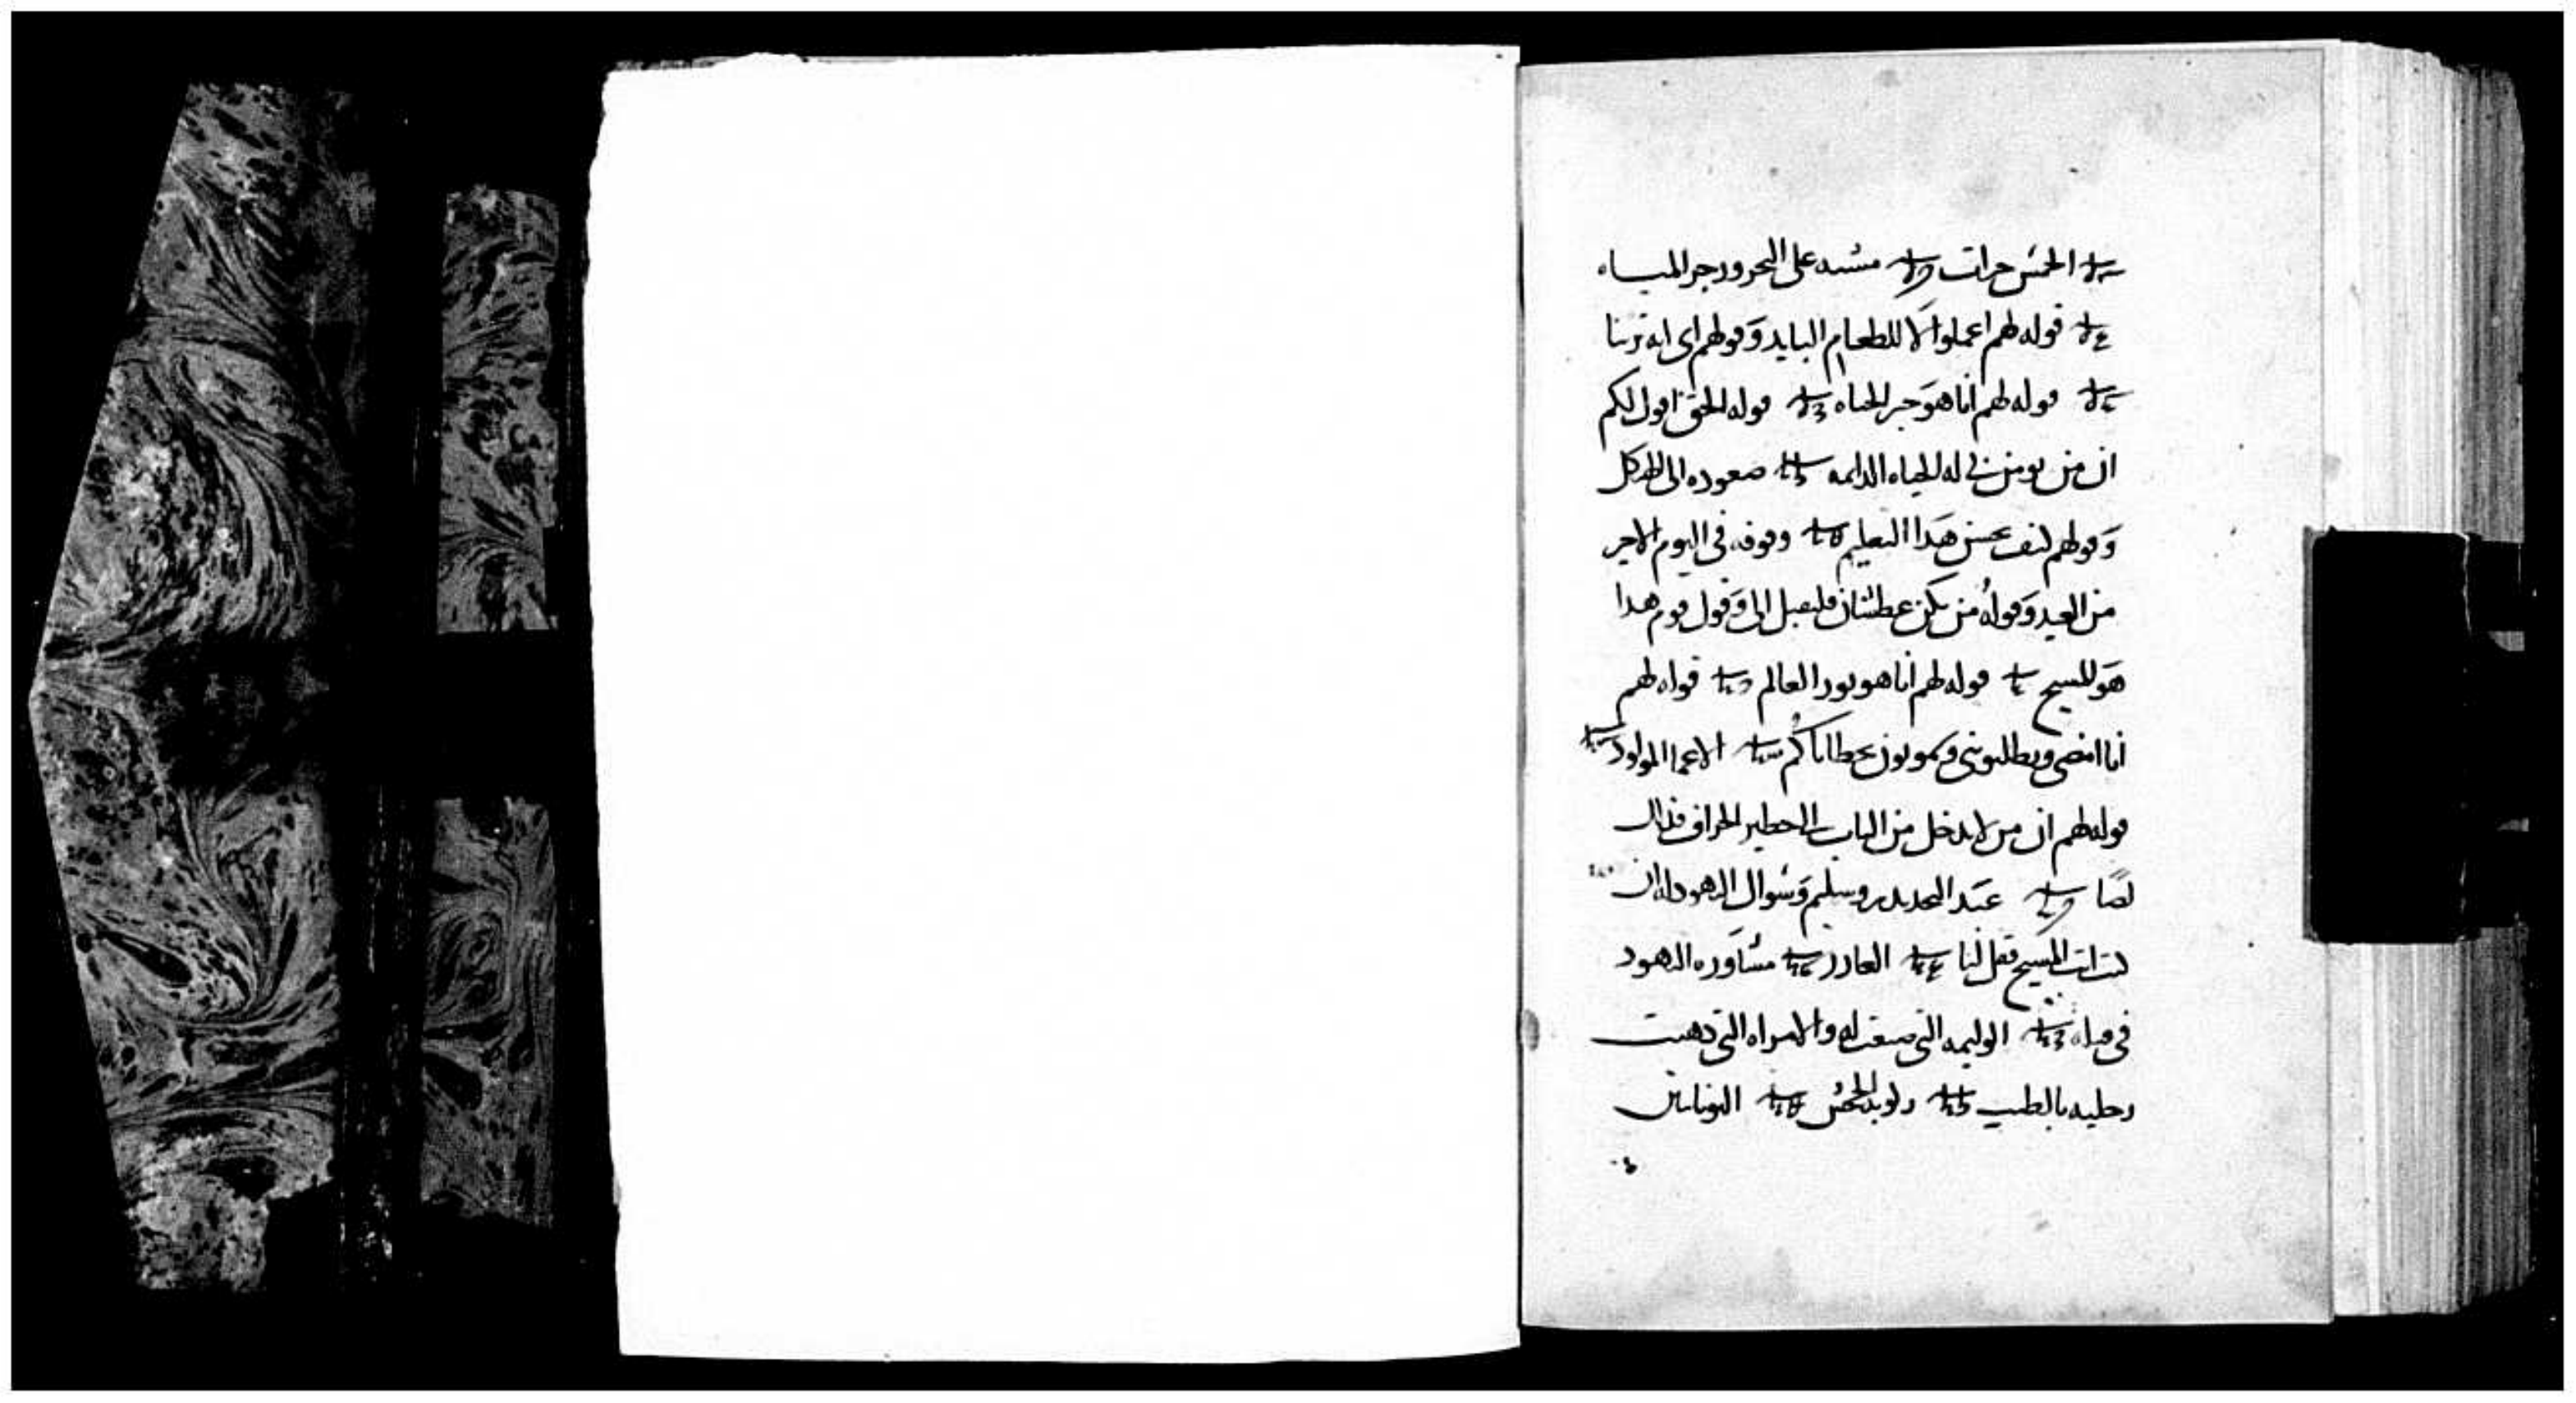 الخمس خبزات مشيه على البحر وزجر المياه
قوله لهم اعملوا لا للطعام البايد وقولهم اى ايه ترينا
قوله لهم انا هو خبز الحياه قوله الحق اقول لكم
ان من يومن بى له الحياه الدايمه صعوده الى الهيكل
وقولهم كيف يحسن هدا التعليم وقوفه فى اليوم الاخير
من العيد وقوله من يكن عطشان فليقبل الى وقول قوم هدا
هو المسيح قوله لهم انا هو نور العالم قوله لهم
انا امضى وتطلبونى وتموتون بخطاياكم الاعما المولود
قوله لهم ان من لا يدخل من الباب الى حظير الخراف فداك
لصا عيد التجديد بيروسليم وسوال اليهود له ان
كنت انت المسيح فقل لنا العازر مشاوره اليهود
فى قتله الوليمه التى صنعت له والامراه التى دهنت
رجليه بالطيب ركوبه الجحش اليونانين